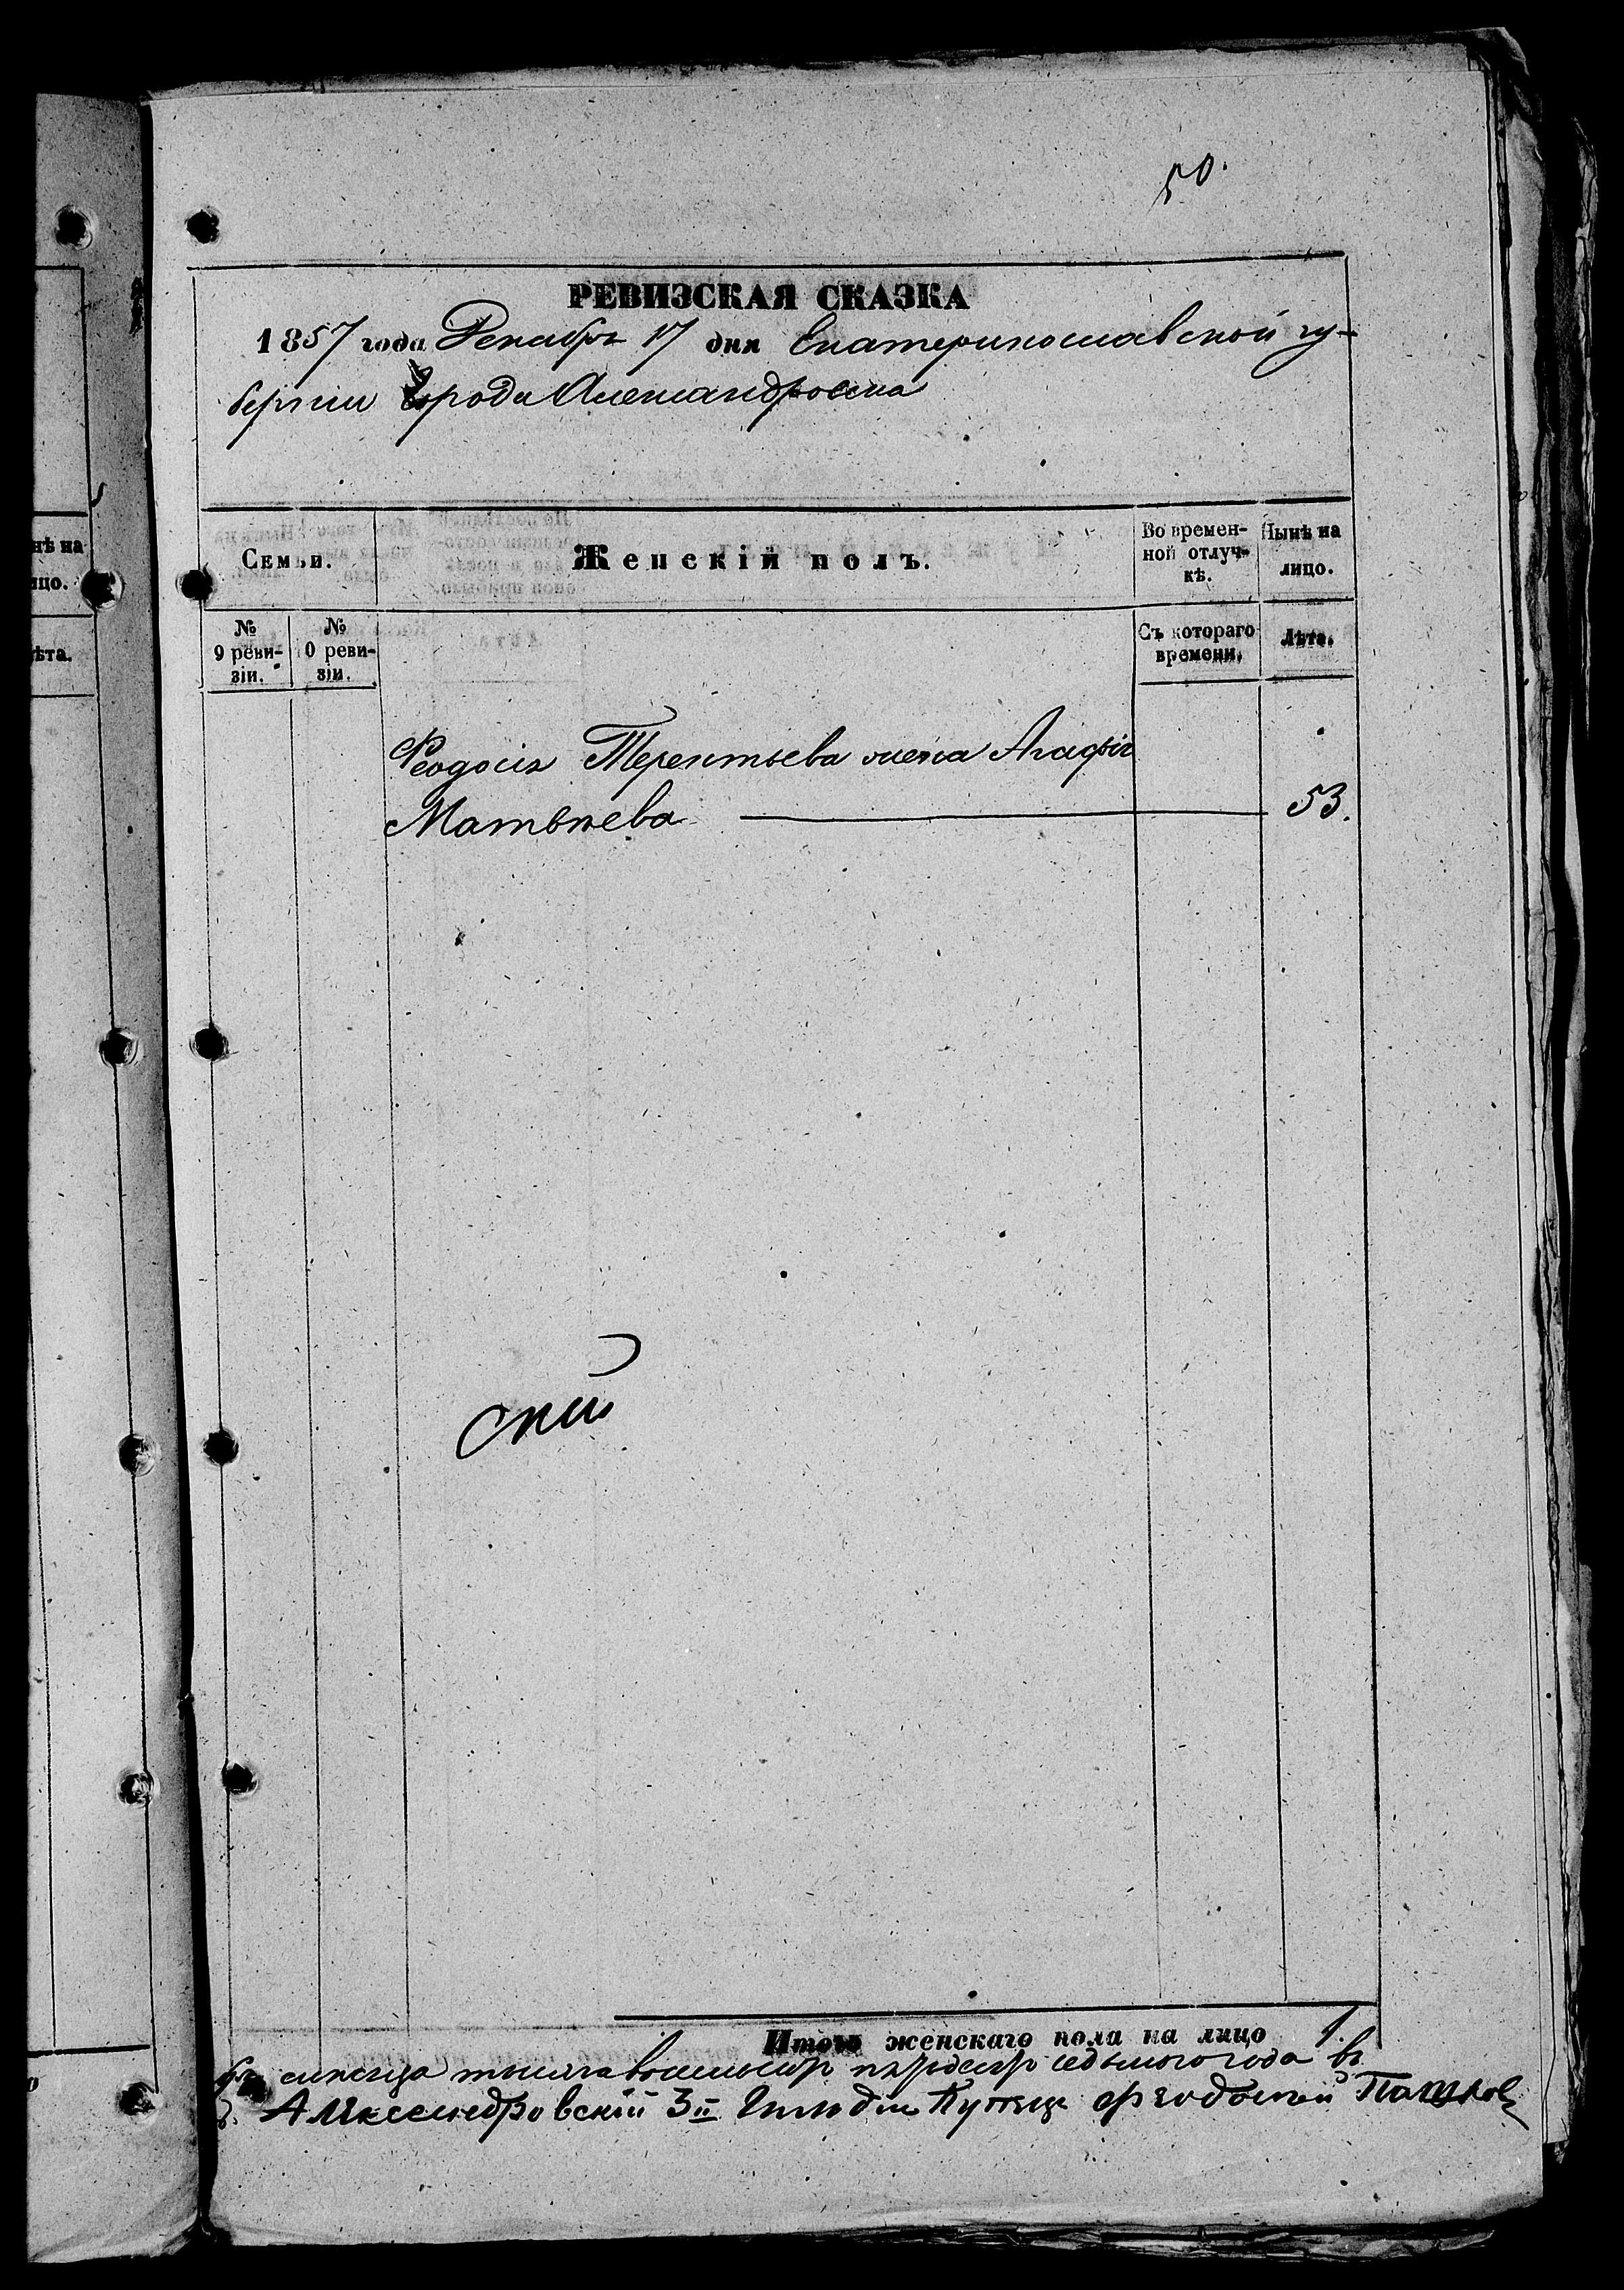 50.
РЕВИЗСКАЯ СКАЗКА
1857 года Декабря 17 дня Екатеринославской гу-
бернии Города Александровска
Семьи.
Женскій полъ.
Во времен-
ной отлуч-
кѣ.
Нынѣ на
лицо.
№
9 реви-
зіи.
№
0 реви-
зіи.
Съ котораго
времени.
Лѣта.
Феодосія Терентьева жена Агафія
Матвѣева 53.
ский
Итого женскаго пола на лицо 1.
бря мѣсяца тысяча восемьсотъ пятдесятъ седьмого года въ
Александровскій 3й Гильдіи Купецъ Феодосий
нѣ на
ицо.
ѣта.